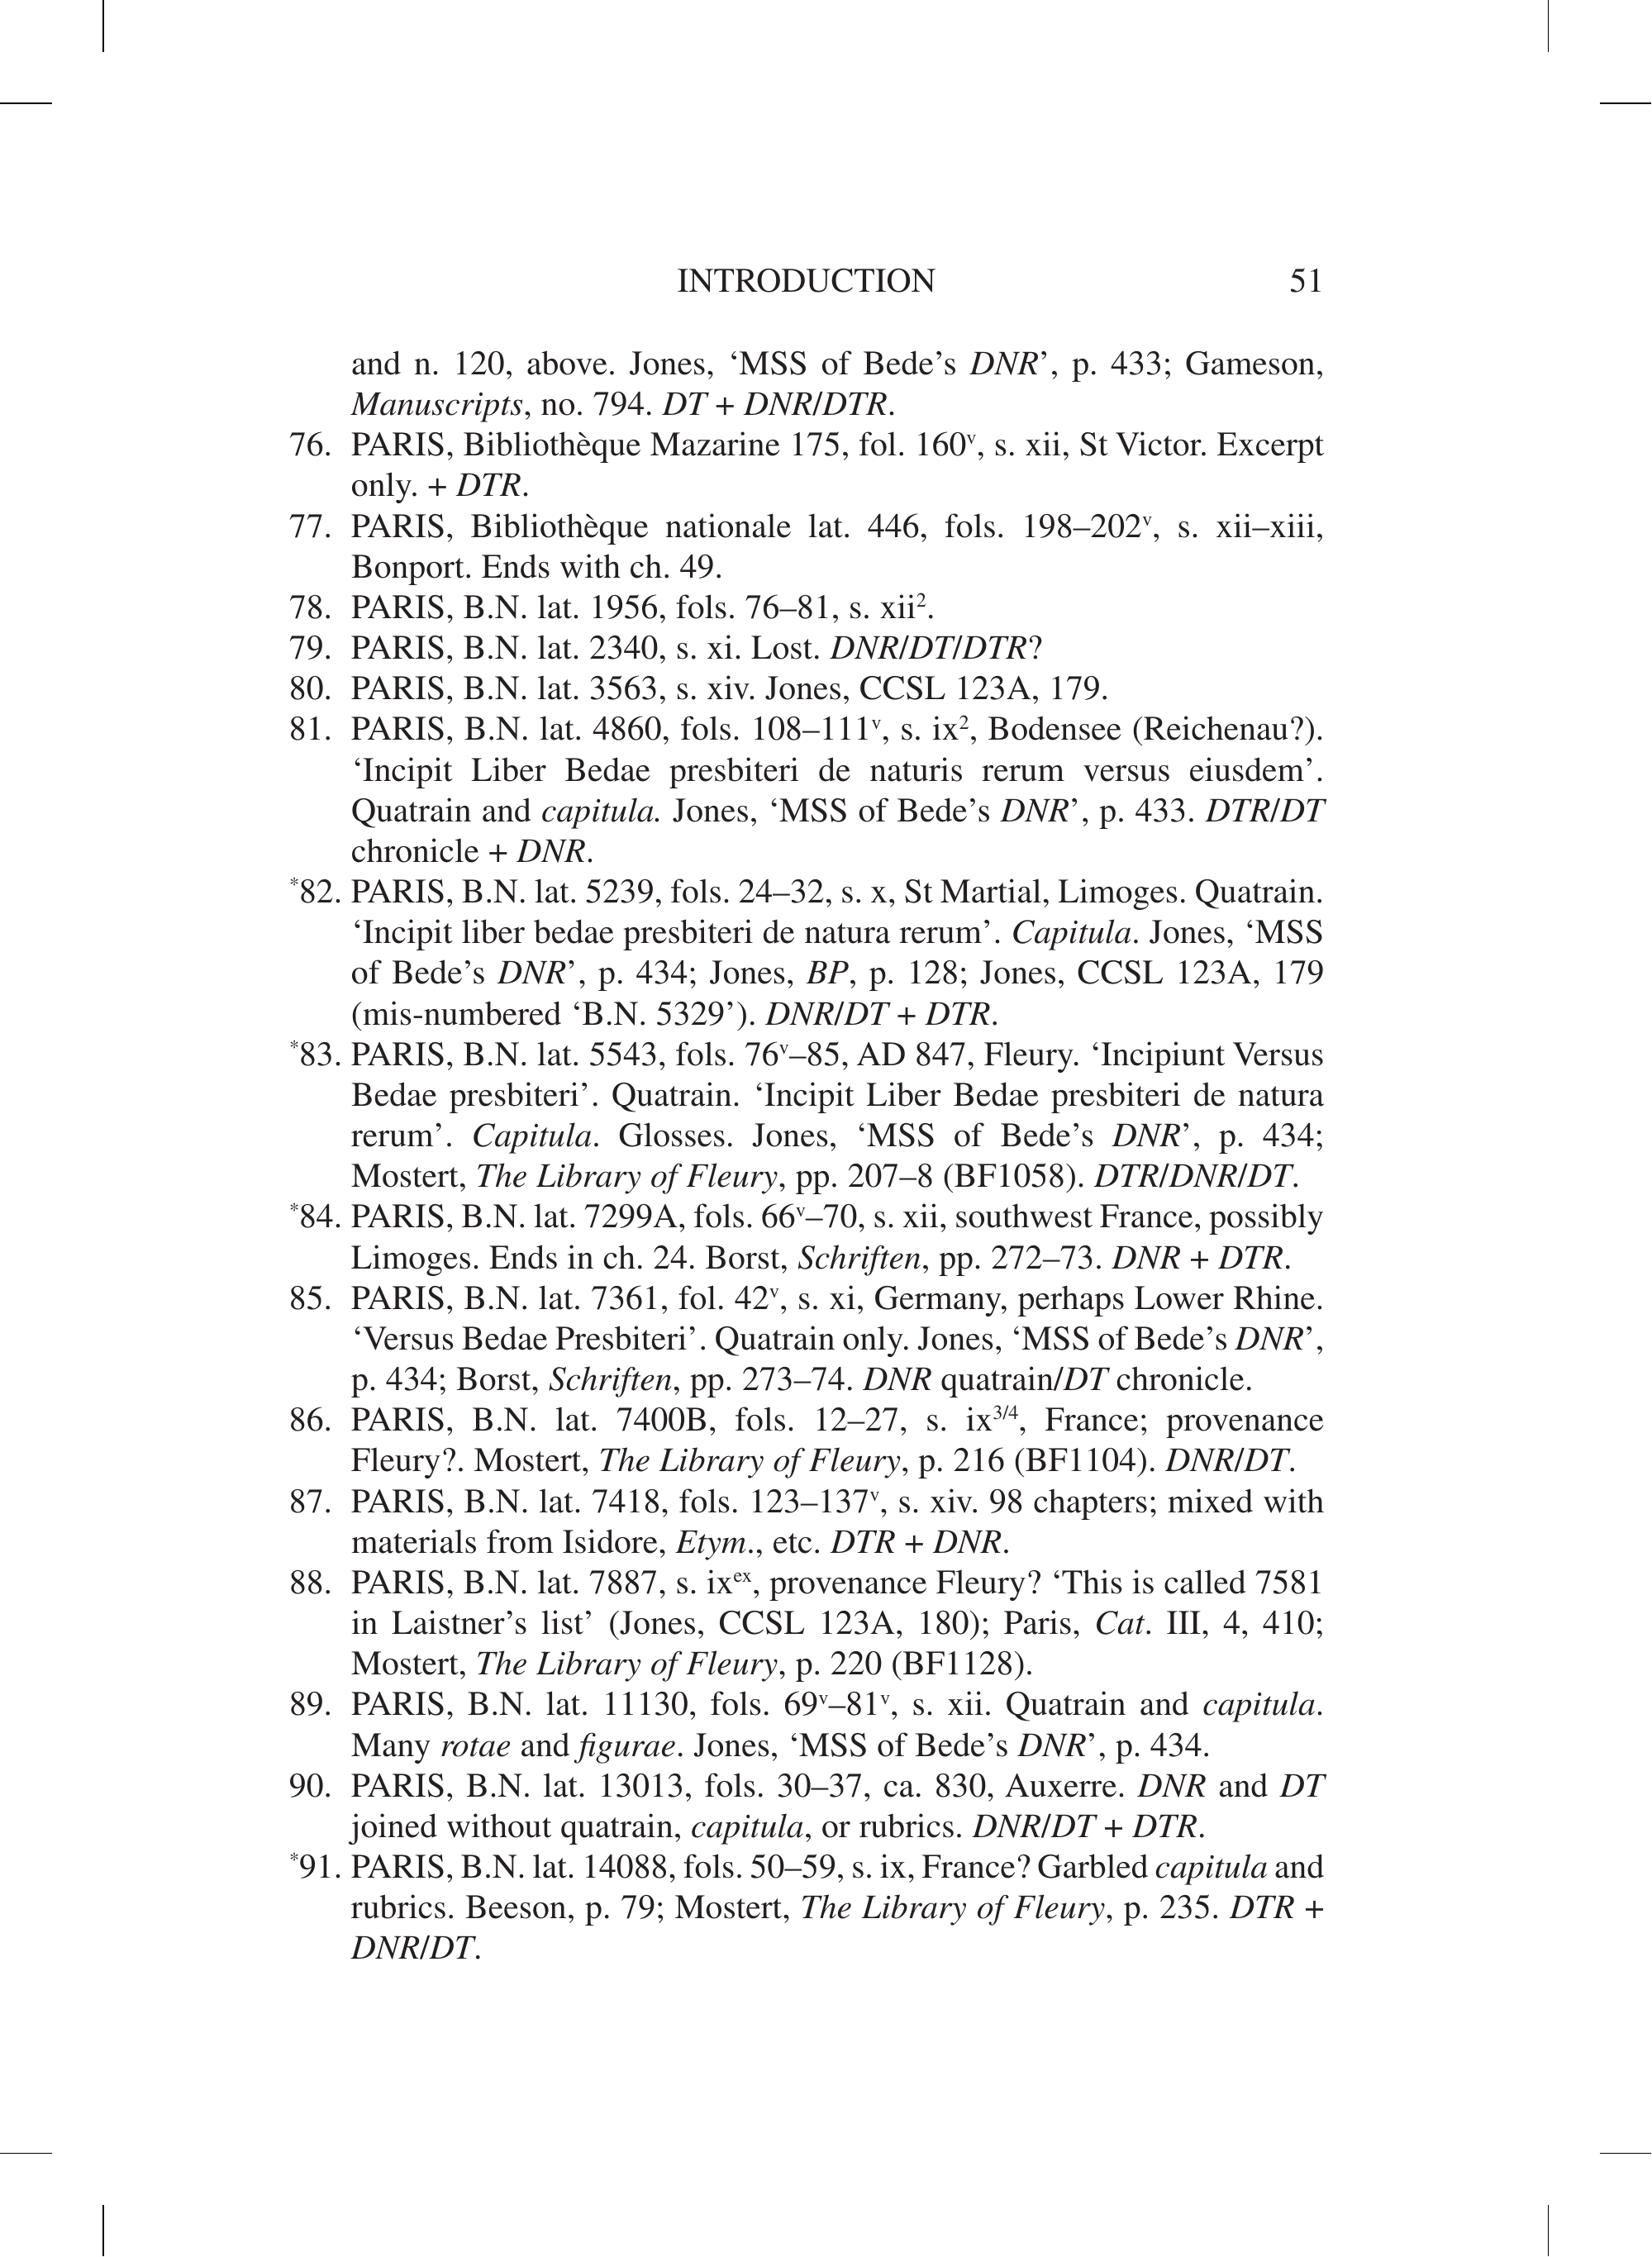 INTRODUCTION 51
and n. 120, above. Jones, ‘MSS of Bede’s DNR’, p. 433; Gameson,
Manuscripts, no. 794. DT + DNR/DTR.
76. PARIS, Bibliothèque Mazarine 175, fol. 160v, s. xii, St Victor. Excerpt
only. + DTR.
77. PARIS, Bibliothèque nationale lat. 446, fols. 198–202v, s. xii–xiii,
Bonport. Ends with ch. 49.
78. PARIS, B.N. lat. 1956, fols. 76–81, s. xii2.
79. PARIS, B.N. lat. 2340, s. xi. Lost. DNR/DT/DTR?
80. PARIS, B.N. lat. 3563, s. xiv. Jones, CCSL 123A, 179.
81. PARIS, B.N. lat. 4860, fols. 108–111v, s. ix2, Bodensee (Reichenau?).
‘Incipit Liber Bedae presbiteri de naturis rerum versus eiusdem’.
Quatrain and capitula. Jones, ‘MSS of Bede’s DNR’, p. 433. DTR/DT
chronicle + DNR.
*82. PARIS, B.N. lat. 5239, fols. 24–32, s. x, St Martial, Limoges. Quatrain.
‘Incipit liber bedae presbiteri de natura rerum’. Capitula. Jones, ‘MSS
of Bede’s DNR’, p. 434; Jones, BP, p. 128; Jones, CCSL 123A, 179
(mis-numbered ‘B.N. 5329’). DNR/DT + DTR.
*83. PARIS, B.N. lat. 5543, fols. 76v–85, AD 847, Fleury. ‘Incipiunt Versus
Bedae presbiteri’. Quatrain. ‘Incipit Liber Bedae presbiteri de natura
rerum’. Capitula. Glosses. Jones, ‘MSS of Bede’s DNR’, p. 434;
Mostert, The Library of Fleury, pp. 207–8 (BF1058). DTR/DNR/DT.
*84. PARIS, B.N. lat. 7299A, fols. 66v–70, s. xii, southwest France, possibly
Limoges. Ends in ch. 24. Borst, Schriften, pp. 272–73. DNR + DTR.
85. PARIS, B.N. lat. 7361, fol. 42v, s. xi, Germany, perhaps Lower Rhine.
‘Versus Bedae Presbiteri’. Quatrain only. Jones, ‘MSS of Bede’s DNR’,
p. 434; Borst, Schriften, pp. 273–74. DNR quatrain/DT chronicle.
86. PARIS, B.N. lat. 7400B, fols. 12–27, s. ix3/4, France; provenance
Fleury?. Mostert, The Library of Fleury, p. 216 (BF1104). DNR/DT.
87. PARIS, B.N. lat. 7418, fols. 123–137v, s. xiv. 98 chapters; mixed with
materials from Isidore, Etym., etc. DTR + DNR.
88. PARIS, B.N. lat. 7887, s. ixex, provenance Fleury? ‘This is called 7581
in Laistner’s list’ (Jones, CCSL 123A, 180); Paris, Cat. III, 4, 410;
Mostert, The Library of Fleury, p. 220 (BF1128).
89. PARIS, B.N. lat. 11130, fols. 69v–81v, s. xii. Quatrain and capitula.
Many rotae and figurae. Jones, ‘MSS of Bede’s DNR’, p. 434.
90. PARIS, B.N. lat. 13013, fols. 30–37, ca. 830, Auxerre. DNR and DT
joined without quatrain, capitula, or rubrics. DNR/DT + DTR.
*91. PARIS, B.N. lat. 14088, fols. 50–59, s. ix, France? Garbled capitula and
rubrics. Beeson, p. 79; Mostert, The Library of Fleury, p. 235. DTR +
DNR/DT.